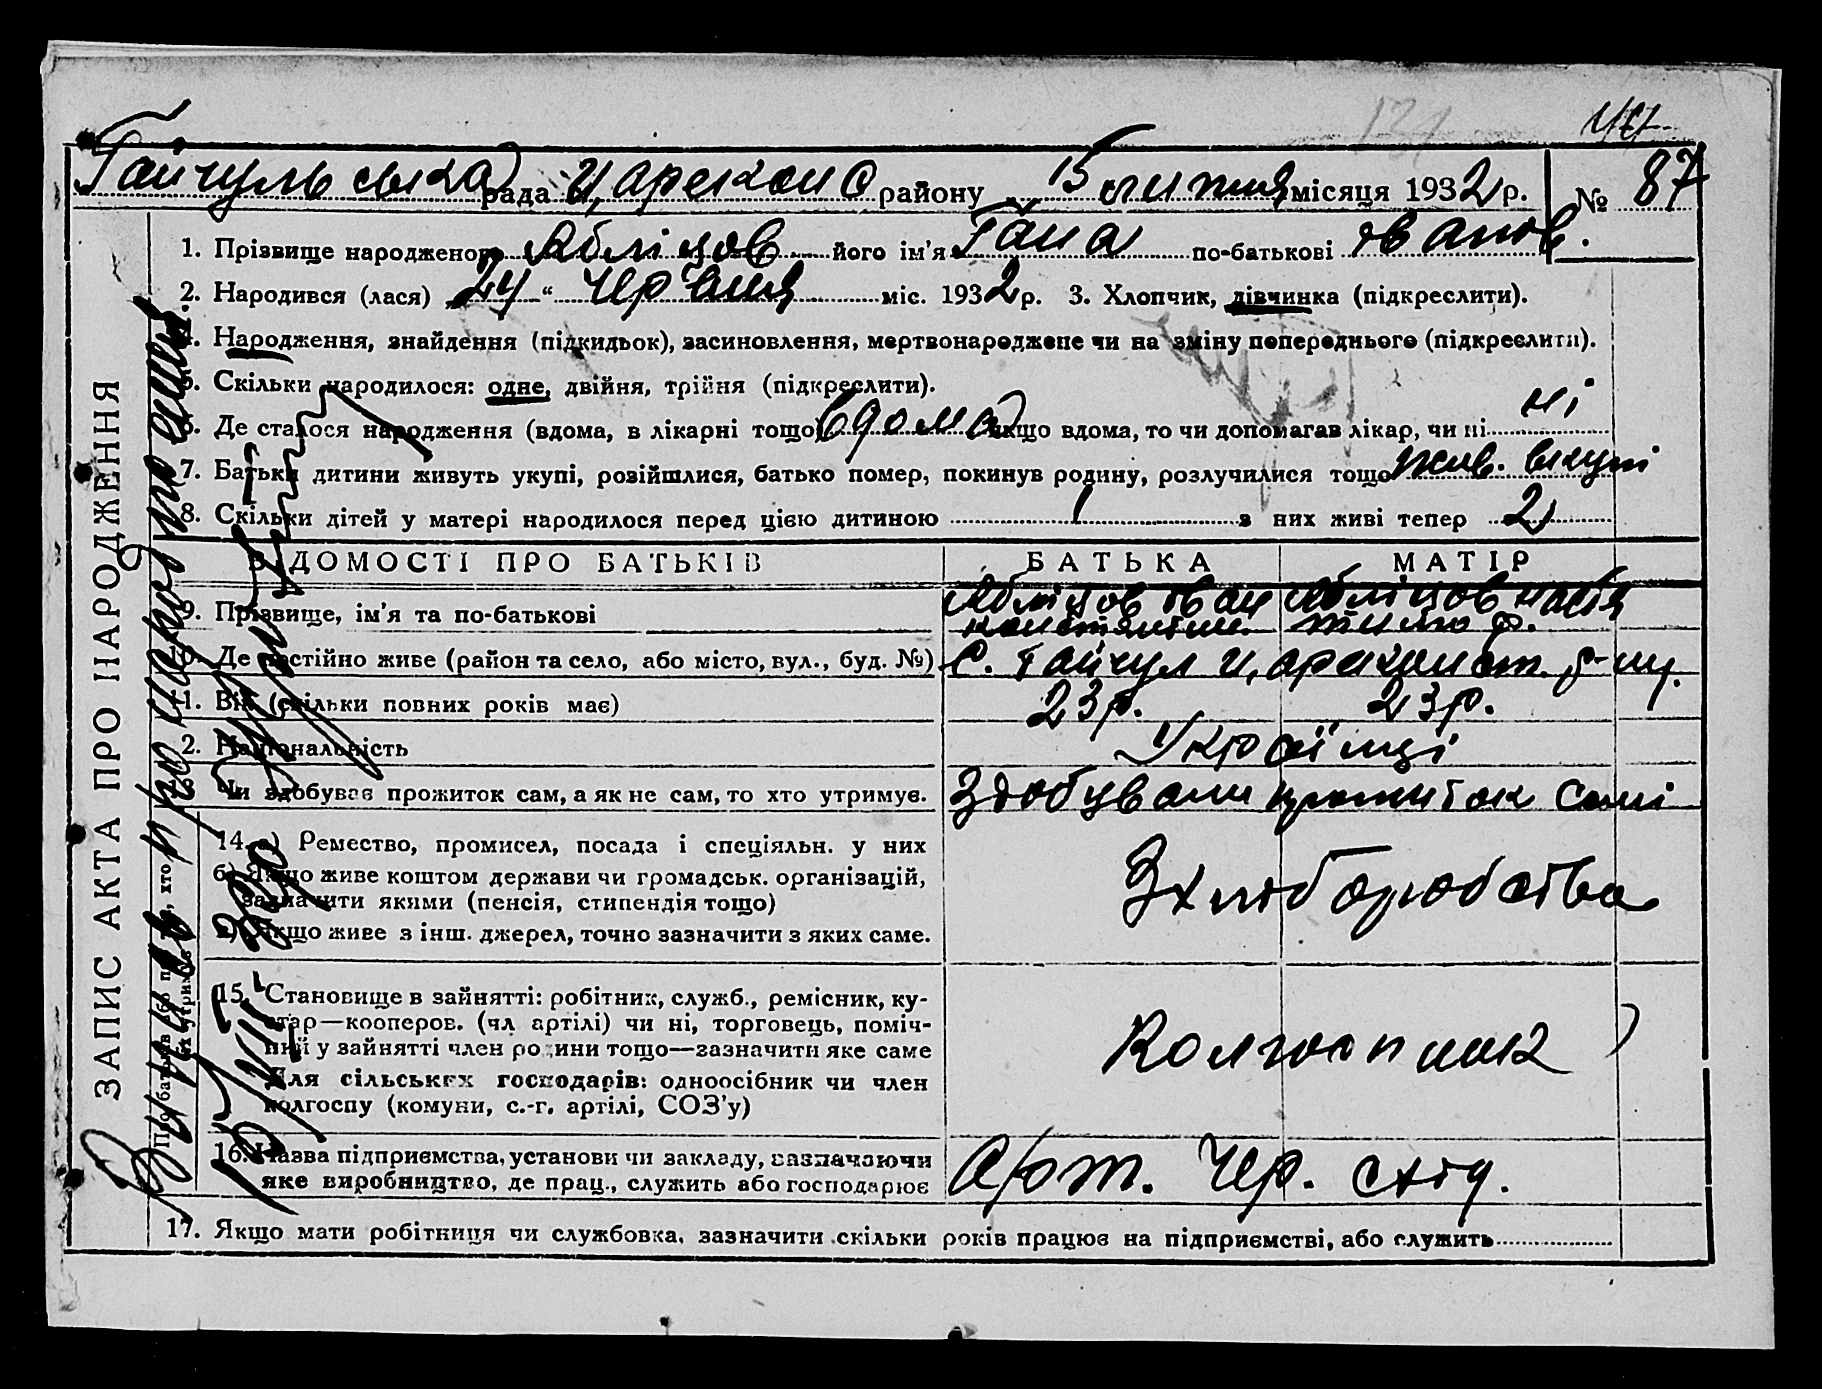 131
87
Гайчульська рада Царекон С району 15 липня місяця 1932 р. №
1. Прізвище народженого Абліцов його ім'я Гана по-батькові Іванів.
2. Народився (лася) 24 " червня міс. 1932 р. 3. Хлопчик, дівчинка (підкреслити).
4. Народження, знайдення (підкидьок), засиновлення, мертвонароджене чи на зміну попереднього (підкреслити).
5. Скільки народилося: одне, двійня, трійня (підкреслити).
6. Де сталося народження (вдома, в лікарні тощо) вдома якщо вдома, то чи допомагав лікар, чи ні ні
7. Батьки дитини живуть укупі, розійшлися, батько помер, покинув родину, розлучилися тощо жив. вкупі
8. Скільки дітей у матері народилося перед цією дитиною 1 з них живі тепер 2
ЗАПИС АКТА ПРО НАРОДЖЕННЯ
ВІДОМОСТІ ПРО БАТЬКІВ БАТЬКА МАТІР
9. Прізвище, ім'я та по-батькові Абліцов Іван Константин. Абліцов Настя Тимоф.
10. Де постійно живе (район та село, або місто, вул., буд. №) С. Гайчул Царекконст. р-ну.
11. Вік (скільки повних років має) 23 р. 23 р.
12. Національність Українці
13. Чи здобував прожиток сам, а як не сам, то хто утримує. Здобували прожиток самі
14. а) Ремество, промисел, посада і спеціяльн. у них
б) Якщо живе коштом держави чи громадськ. організацій,
зазначити якими (пенсія, стипендія тощо)
в) Якщо живе з інш. джерел, точно зазначити з яких саме.
З хліборобства
15. Становище в зайнятті: робітник, служб., ремісник, ку-
стар—кооперов. (чл. артілі) чи ні, торговець, поміч-
ний у зайнятті член родини тощо—зазначити яке саме
Для сільських господарів: одноосібник чи член
колгоспу (комуни, с.-г. артілі, СОЗ'у)
Колгоспник
16. Назва підприємства, установи чи закладу, зазначаючи
яке виробництво, де прац., служить або господарює
Арт. Чер. схід.
17. Якщо мати робітниця чи службовка, зазначити скільки років працює на підприємстві, або служить